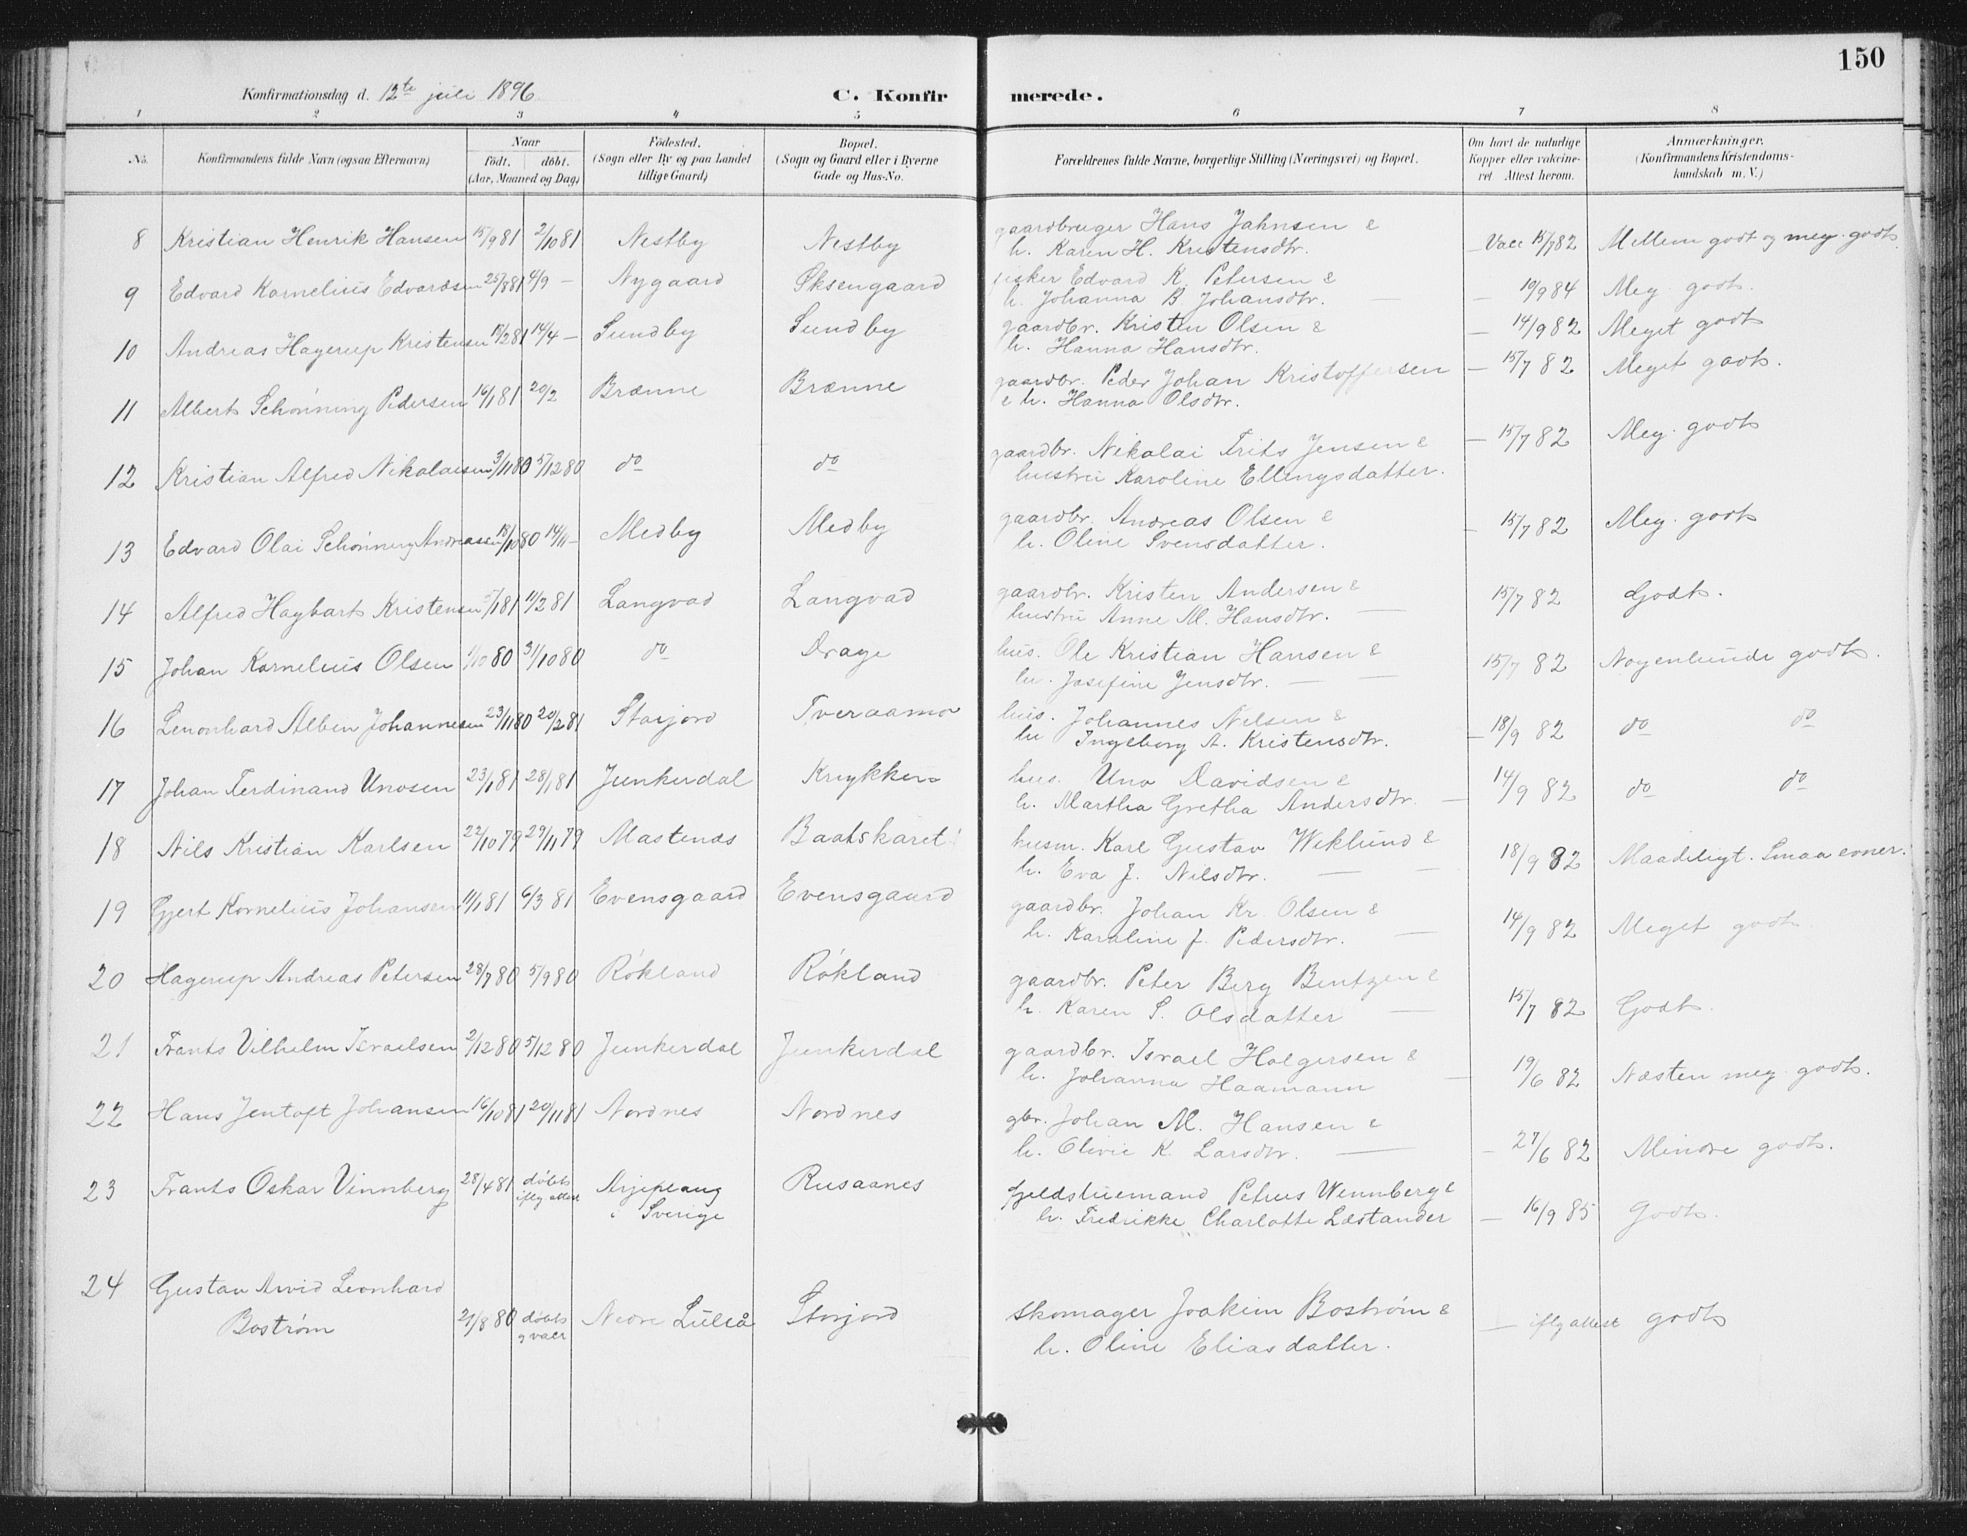 150
Konfirmationsdag d. 12te juli 1896. C. Konfirmerede.
1 2 3 4 5 6 7 8
No. Konfirmandens fulde Navn (ogsaa Efternavn) Naar födt. döbt. (Aar, Maaned og Dag) Födested. (Sogn eller By og paa Landet tillige Gaard) Bopæl. (Sogn og Gaard eller i Byerne Gade og Hus-No. Forældrenes fulde Navne, borgerlige Stilling (Næringsvei) og Bopæl. Om havt de naturlige Kopper eller vakcineret. Attest herom. Anmærkninger. (Konfirmandens Kristendomskundskab m. V.)
8 Kristian Henrik Hansen 15/9 81 2/10 81 Nestby Nestby gaardbruger Hans Jahnsen &
h. Karen H. Kristensdtr. Vacc 15/7 82 Mellem godt og meg. godt.
9 Edvard Kornelius Edvardsen 25/8 81 4/9 — Nygaard Øksengaard fisker Edvard K. Petersen &
h. Johanna B. Johansdtr. — — 19/9 84 Meg. godt.
10 Andreas Hagerup Kristensen 15/2 81 14/4 — Sundby Sundby gaardbr. Kristen Olsen &
h. Hanna Hansdtr. — 14/9 82 Meget godt
11 Albert Schönning Pedersen 16/1 81 20/2 Brænne Brænne gaardbr. Peder Johan Kristoffersen
& h. Hanna Olsdtr. — 15/7 82 Meget godt.
12 Kristian Alfred Nikolaisen 3/11 80 5/12 80 do do gaardbr. Nikolai Frits Jensen &
hustru Karoline Ellingsdatter. — 15/7 82 Meg. godt
13 Edvard Olai Schönning Andreasen 18/10 80 14/11 — Medby Medby gaardbr. Andreas Olsen &
h. Oline Svensdatter. — 15/7 82 Meg. godt
14 Alfred Hagbart Kristensen 5/1 81 11/2 81 Langvad Langvad gaardbr. Kristen Andersen &
hustru Anne M. Hansdtr. — 15/7 82 Godt.
15 Johan Kornelius Olsen 1/10 80 31/10 80 do Drage hus. Ole Kristian Hansen &
h. Josefine Jensdtr. — — 15/7 82 Nogenlunde godt.
16 Lenonhard Alben Johannesen 23/11 80 20/2 81 Storjord Tveraamo hus. Johannes Nilsen &
h. Ingeborg A. Kristensdtr. — 18/9 82 do do
17 Johan Ferdinand Unosen 23/1 81 28/1 81 Junkerdal Krykken hus. Uno Davidsen &
h. Martha Gretha Andersdtr. — 14/9 82 do do
18 Nils Kristian Karlsen 22/10 79 29/11 79 Mastenes Baatskaret husm. Karl Gustav Wiklund &
h. Eva J. Nilsdtr. — — 18/9 82 Maadeligt. Smaa evner.
19 Gjert Kornelius Johansen 11/1 81 6/3 81 Evensgaard Evensgaard gaardbr. Johan Kr. Olsen &
h. Karoline J. Pedersdtr. — 14/9 82 Meget godt.
20 Hagerup Andreas Petersen 28/7 80 5/9 80 Rókland Rókland gaardbr. Peter Berg Bentzen &
h. Karen S. Olsdatter — 15/7 82 Godt.
21 Frants Vilhelm Israelsen 2/12 80 5/12 80 Junkerdal Junkerdal gaardbr. Israel Holgersen &
h. Johanna Haamann — 19/6 82 Næsten meg. godt.
22 Hans Jentoft Johansen 16/10 81 20/11 81 Nordnes Nordnes gbr. Johan M. Hansen &
h. Olivie K. Larsdtr. — — 27/6 82 Mindre godt.
23 Frants Oskar Vinnberg 28/4 81 döbt iflg attest Arjeplaug i Sverige Rusaanes fjeldstuemand Petrus Wennberg &
h. Fredrikke Charlotte Læstander — 16/9 85 Godt.
24 Gustav Arvid Leonhard
Boström 21/8 80 döbt g vacc Nedre Luleå Storjord skomager Joakim Boström &
h. Oline Eliasdatter. — iflg attest godt